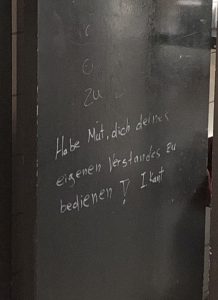 zu
Habe Mut, dich deines
eigenen Verstandes zu
bedienen! I. Kant